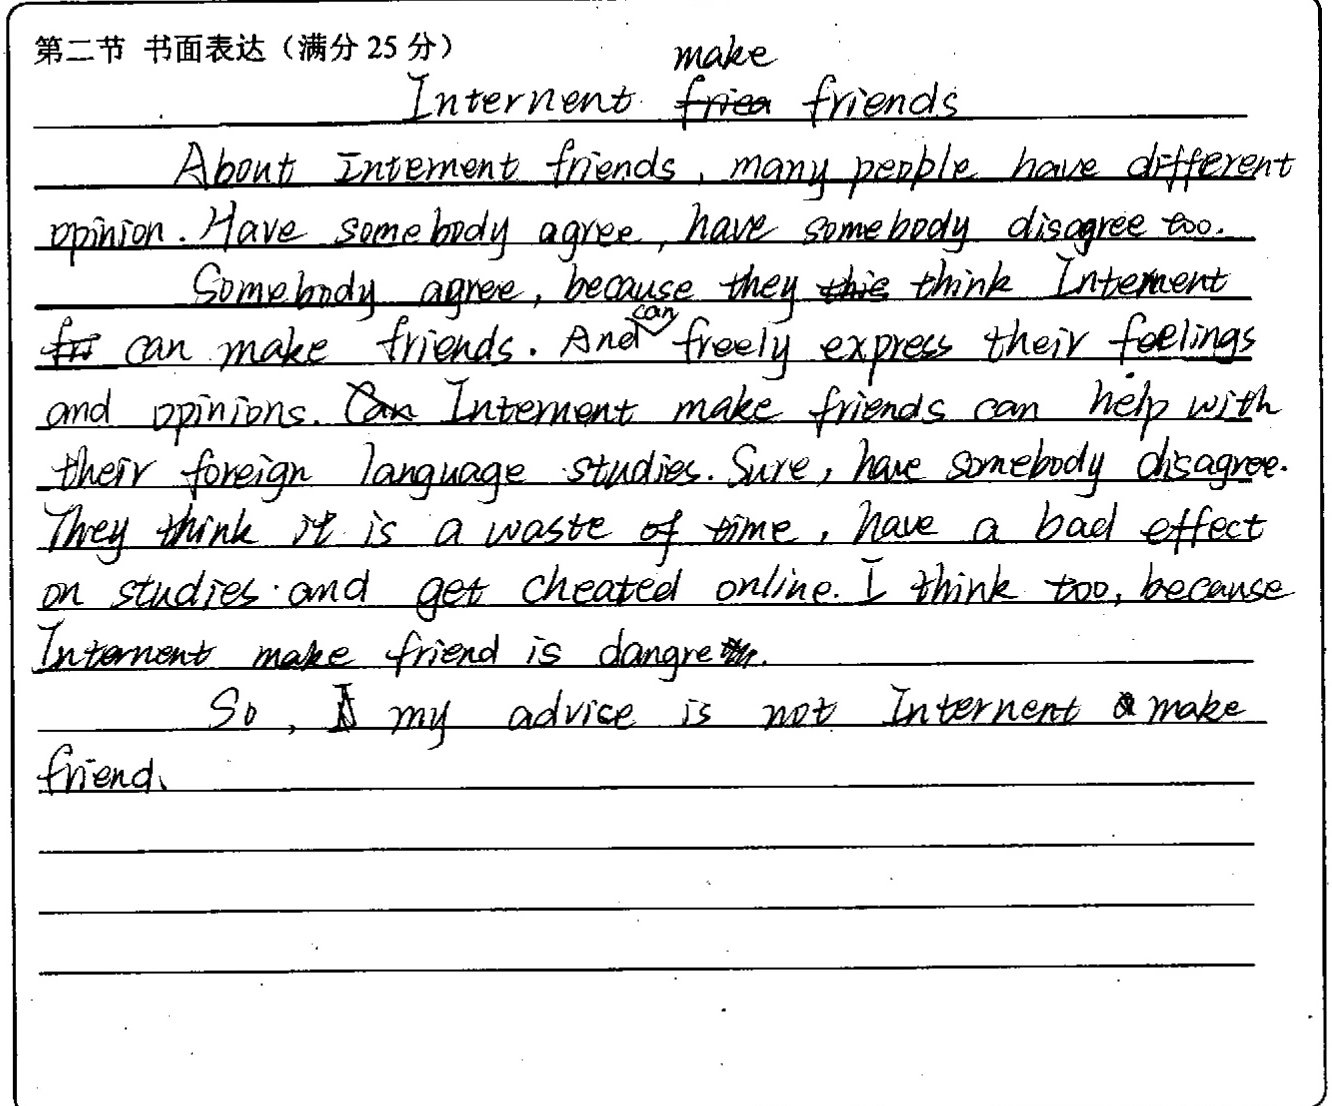 第二节 书面表达（满分 25 分）
make
Internent friends
About Internent friends, many people have different
opinion. Have somebody agree, have somebody disagree too.
Somebody agree, because they think Internent
can make friends. And can freely express their feelings
and opinions. Internent make friends can help with
their foreign language studies. Sure, have somebody disagree.
They think it is a waste of time, have a bad effect
on studies and get cheated online. I think too, because
Internent make friend is dangre
So, my advice is not Internent make
friend.